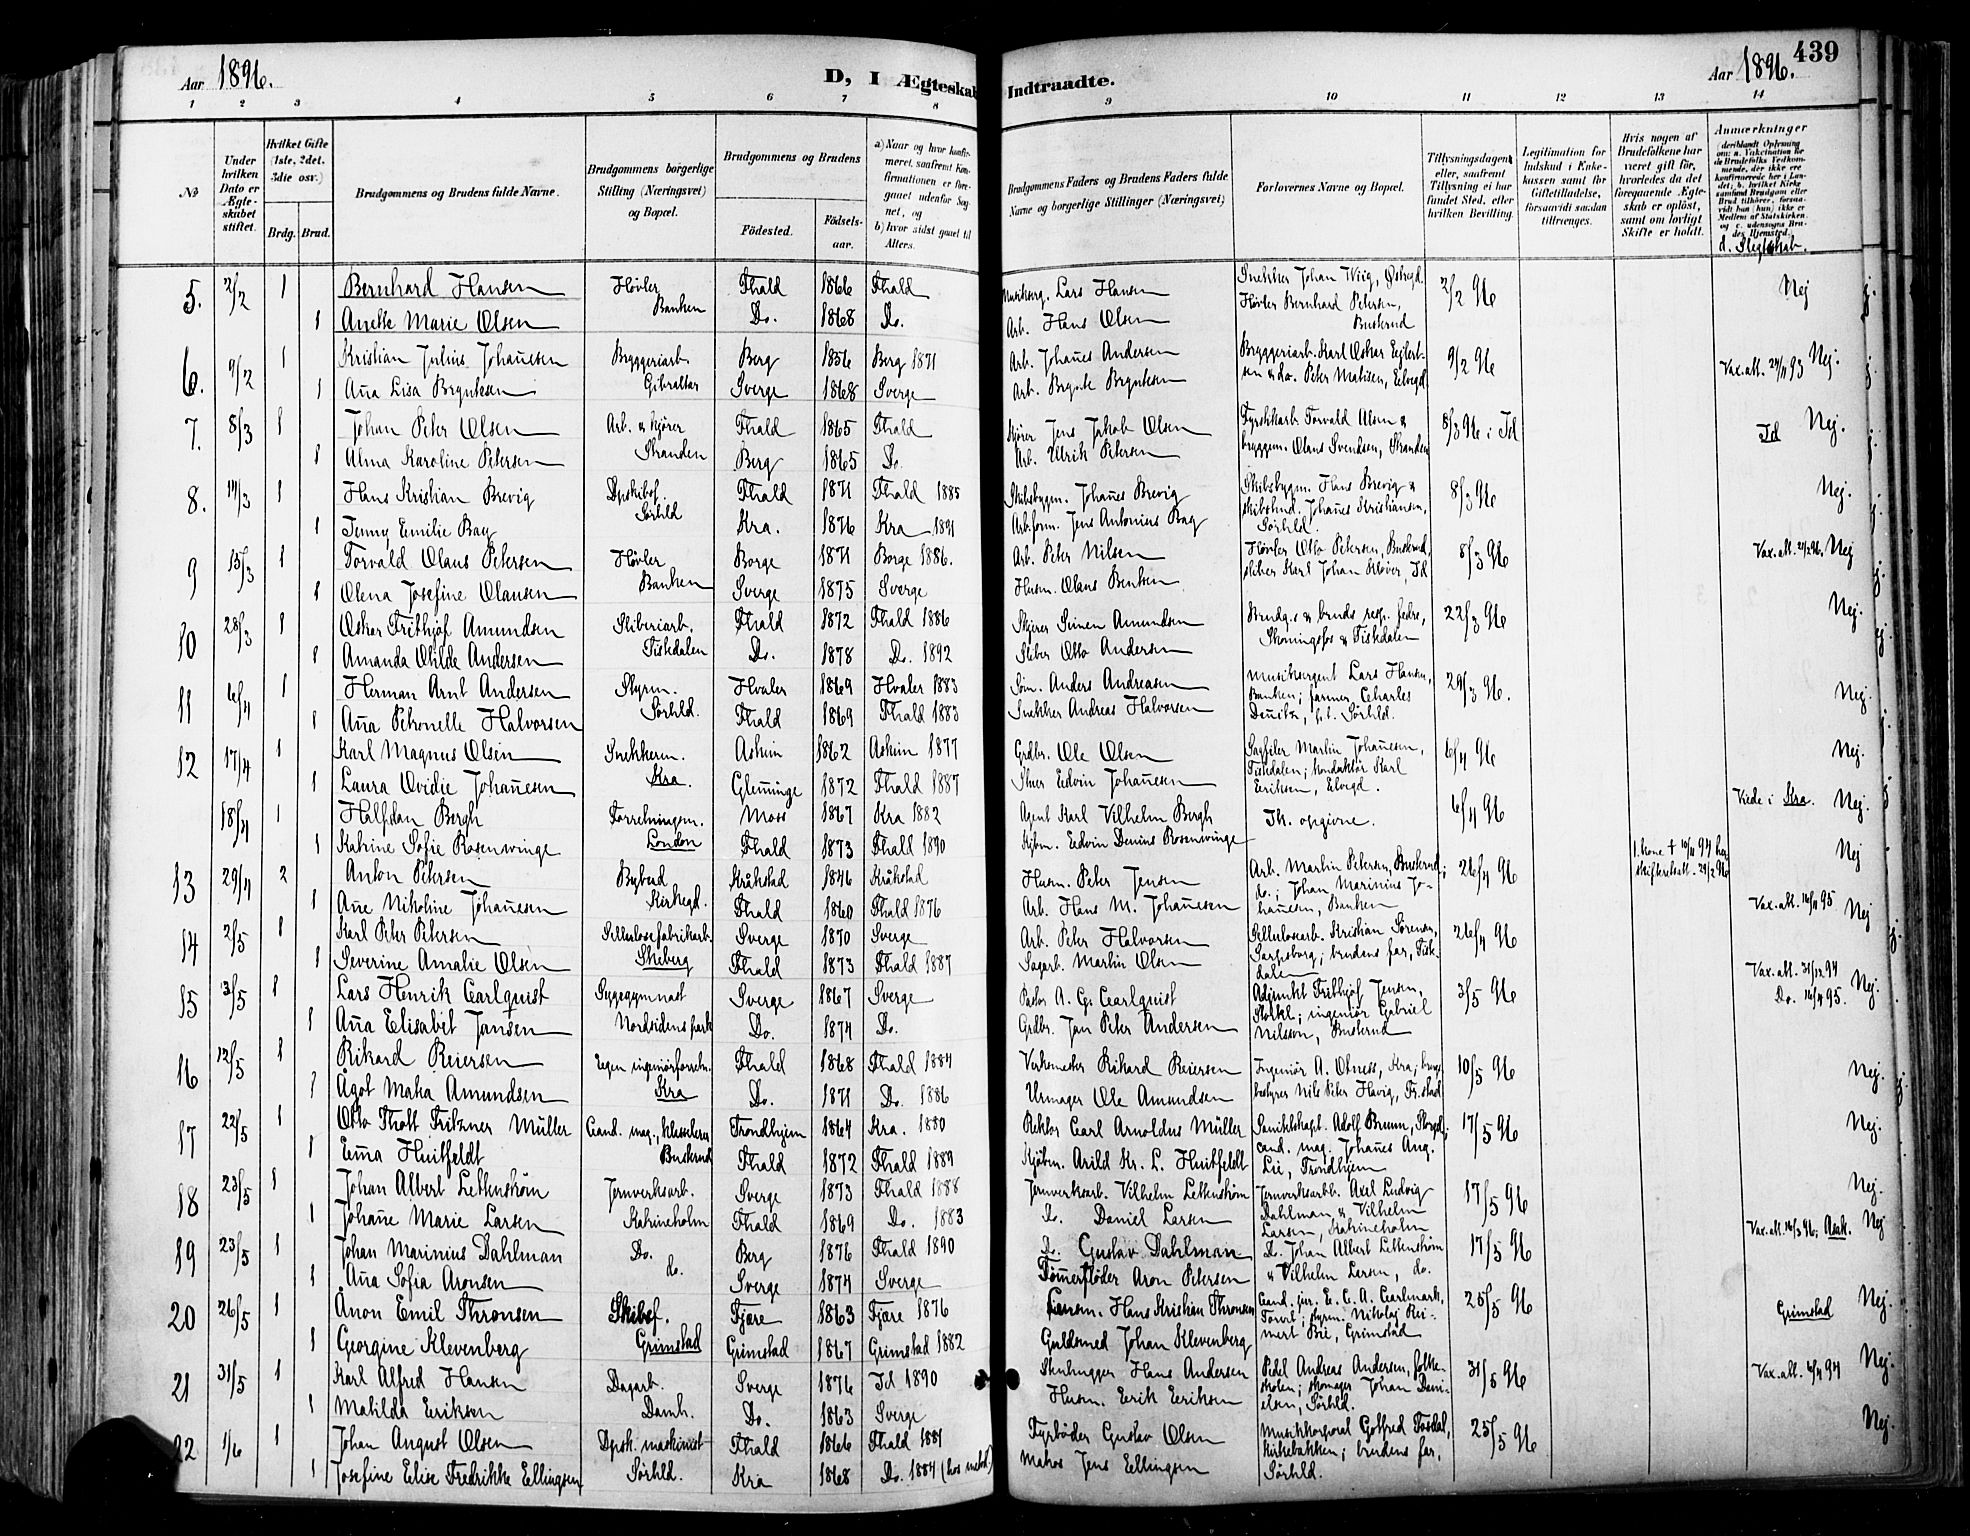 Aar 1896.
D, I Ægteskab
Indtraadte.
Aar 1896.
439
1 2 3 4 5 6 7 8 9 10 11 12 13 14
№
Under hvilken Dato er Ægteskabet stiftet.
Hvilket Gifte (1ste, 2det, 3die osv.)
Brdg. Brud.
Brudgommens og Brudens fulde Navne.
Brudgommens borgerlige Stilling (Næringsvei) og Bopæl.
Brudgommens og Brudens
Födested.
Födsels-aar.
a) Naar og hvor konfirmeret, saafremt Konfirmationen er foregaaet udenfor Sognet, og
b) hvor sidst gaaet til Alters.
Brudgommens Faders og Brudens Faders fulde Navne og borgerlige Stillinger (Næringsvei)
Forlovernes Navne og Bopæl.
Tillysningsdagen eller, saafremt Tillysning ei har fundet Sted, efter hvilken Bevilling.
Legitimation for Indskud i Enkekassen samt for Giftetilladelse, forsaavidt saadan tiltrænges.
Hvis nogen af Brudefolkene har været gift för, hvorledes da det foregaaende Ægteskab er oplöst, samt om lovligt Skifte er holdt.
Anmærkninger
d. Slegtskab.
5. 2/2 1 Bernhard Hansen Høvler Fhald 1866 Fhald Musikserg. Lars Hansen Snekker Johan Wiig, Østregd. 2/2 96 Nej
1 Anette Marie Olsen Banken Do. 1868 Do. Arb. Hans Olsen Høvler Bernhard Petersen, Buskerud
6. 9/2 1 Kristian Julius Johan̄esen Bryggeriarb. Berg 1856 Berg 1871 Arb. Johan̄es Andersen Bryggeriarb. Karl Oskar Eilert- 9/2 96 Nej.
1 An̄a Lisa Bryntesen Gibraltar Sverge 1868 Sverge Arb. Brynte Bryntesen sen & do. Peter Matisen, Elvegd. Vax. att. 24/4 93
7. 8/3 1 Johan Peter Olsen Arb. & kjører Fhald 1865 Fhald Kjører Jens Jakob Olsen Fyrstikarb. Torvald Olsen & 8/3 96 i Id Id Nej.
1 Alma Karoline Petersen Stranden Berg 1865 Do. Arb. Ulrik Petersen bryggem. Olaus Svendsen, Stranden
8. 14/3 1 Hans Kristian Brevig Dpskibsf. Fhald 1871 Fhald 1885 Skibsbygm. Johan̄es Brevig Skibsbygm. Hans Brevig & 8/3 96 Nej.
1 Jenny Emilie Bay Sørhld Kra. 1876 Kra 1891 Arb.form. Jens Antonius Bay skibstmd. Johan̄es Kristiansen, Sørhld.
9 15/3 1 Torvald Olaus Petersen Høvler Borge 1871 Borge 1886. Arb. Peter Nilsen Høvler Otto Petersen, Buskerud, 8/3 96 Vax. att. 21/2 96. Nej
1 Olena Josefine Olausen Banken Sverge 1875 Sverge Husm. Olaus Bentsen sliber Karl Johan Kløver, Id
10 28/3 1 Oskar Frithjof Amundsen Sliberiarb. Fhald 1872 Fhald 1886 Skjærer Simen Amundsen Brudg.s & bruds resp. fædre, 22/3 96 Nej.
1 Amanda Otilde Andersen Tistedalen Do. 1878 Do. 1892 Sliber Otto Andersen Skoningsfos & Tistedalen
11 6/4 1 Herman Arnt Andersen Styrm. Hvaler 1869 Hvaler 1883 Søm. Anders Andreasen Musiksergent Lars Hansen, Banken; farmer Charles 29/3 96. Nej.
1 An̄a Petronelle Halvorsen Sørhld. Fhald 1869 Fhald 1883 Snekker Andreas Halvorsen
12 17/4 1 Karl Magnus Olsen Snekkerm. Askim 1862 Askim 1877 Grdbr. Ole Olsen Sagfiler Martin Johan̄esen, Tistedalen; konduktør Karl 6/4 96 Nej.
1 Laura Ovidie Johan̄esen Kra. Glem̄inge 1872 Fhald 1887 Edvin Johan̄esen Eriksen, Elvegd.
18/4 1 Halfdan Bergh Forretningsm. Moss 1867 Kra 1882 Agent Karl Vilhelm Bergh Ik. opgivne. 6/4 96 Viede i Kra. Nej.
1 Katrine Sofie Rosenvinge London Fhald 1873 Fhald 1890 Kjbm. Edvin Denius Rosenvinge
13 29/4 2 Anton Petersen Bybud Kråkstad 1846 Kråkstad Husm. Peter Jensen Arb. Martin Petersen, Buskerud; 26/4 96 1. kone † 10/11 94 her skifteretsatt. 29/2 96 Nej
1 An̄e Nikoline Johan̄esen Kirkegd. Fhald 1860 Fhald 1876 Arb. Hans M. Johan̄esen do.; Johan Marinius Johan̄esen, Banken
14 2/5 1 Karl Peter Petersen Sellulosefabrikarb. Sverge 1870 Sverge Arb. Peter Halvorsen Sellulosearb. Kristian Sørensen, 26/4 96 Vax. att. 16/4 95 Nej
1 Severine Amalie Olsen Skeberg Fhald 1873 Fhald 1887 Sagarb. Martin Olsen Sarpsborg; brudens far, Tistdalen
15 3/5 1 Lars Henrik Carlquist Sygegymnast Sverge 1867 Sverge Pastor A. G. Carlquist Adjunkt Frithjof Jensen, 3/5 96 Vax. att. 31/12 94 Nej.
1 An̄a Elisabet Jansen Nordsidens park Do. 1874 Do. Grdbr. Jan Peter Andersen ingeniør Gabriel Nilsson, Buskerud Do. 16/4 95.
16 12/5 1 Rikard Reiersen Egen ingeniørforretn. Fhald 1868 Fhald 1884 Verkmester Rikard Reiersen Ingeniør A. Otness, Kra; 10/5 96 Nej.
1 Ågot Maka Amundsen Kra Do. 1871 Do. 1886 Urmager Ole Amundsen bestyrer Nils Peter Havig, Fr.stad
17 22/5 1 Otto Thott Fritzner Müller Cand. mag., klasselærer Trondhjem 1864 Kra. 1880 Rektor Carl Arnoldus Müller Sanitetskapt. Adolf Bruun, Storgd.; 17/5 96 Nej.
1 Em̄a Huitfeldt Buskerud Fhald 1872 Fhald 1889 Kjøbm. Arild Kr. L. Huitfeldt cand. mag. Johan̄es Aug. Lie, Trondhjem
18 23/5 1 Johan Albert Lettenstrøm Jernverksarb. Sverge 1873 Fhald 1888 Jernverksarb. Vilhelm Lettenstrøm Jernverksarbb. Axel Ludvig 17/5 96 Nej.
1 Johan̄e Marie Larsen Katrineholm Fhald 1869 Do. 1883 Do. Daniel Larsen Dahlman & Vilhelm Larsen, Katrineholm
19 23/5 1 Johan Marinius Dahlman Do. Berg 1876 Fhald 1890 Do. Gustav Dahlman Do. Johan Albert Lettenstrøm 17/5 96 Vax. att. 16/3 96; Asak. Nej
1 An̄a Sofia Aronsen do. Sverge 1874 Sverge Töm̄erfløder Aron Petersen & Vilhelm Larsen, do.
20 26/5 1 Anon Emil Thronsen Skibsf. Fjære 1863 Fjære 1876 Hans Kristian Thronsen Cand. jur. E. C. A. Carlmark, 25/5 96 Grimstad Nej.
1 Georgine Klevenberg Grimstad Grimstad 1867 Grimstad 1882 Guldsmed Johan Klevenberg Torvet; styrm. Nikolaj Reimert Bie, Grimstad
21 31/5 1 Karl Alfred Hansen Dagarb. Sverge 1876 Id 1890 Stenhugger Hans Andersen Pedel Andreas Andersen, folke- 31/5 96 Vax. att. 6/4 94 Nej.
1 Matilda Eriksen Damh. Do. 1863 Sverge Husm. Erik Eriksen skolen; skomager Johan Danielsen, Sørhld.
22 1/6 1 Johan August Olsen Dpsk. maskinist Fhald 1866 Fhald 1881 Fyrbøder Gustav Olsen Musikkorporal Gotfred Tosdal, 25/5 96 Nej.
1 Josefine Elise Fredrikke Ellingsen Sørhld. Kra 1868 Do. 1884 (hos metod.) Matros Jens Ellingsen Kirkebakken; brudens far, Sørhld.